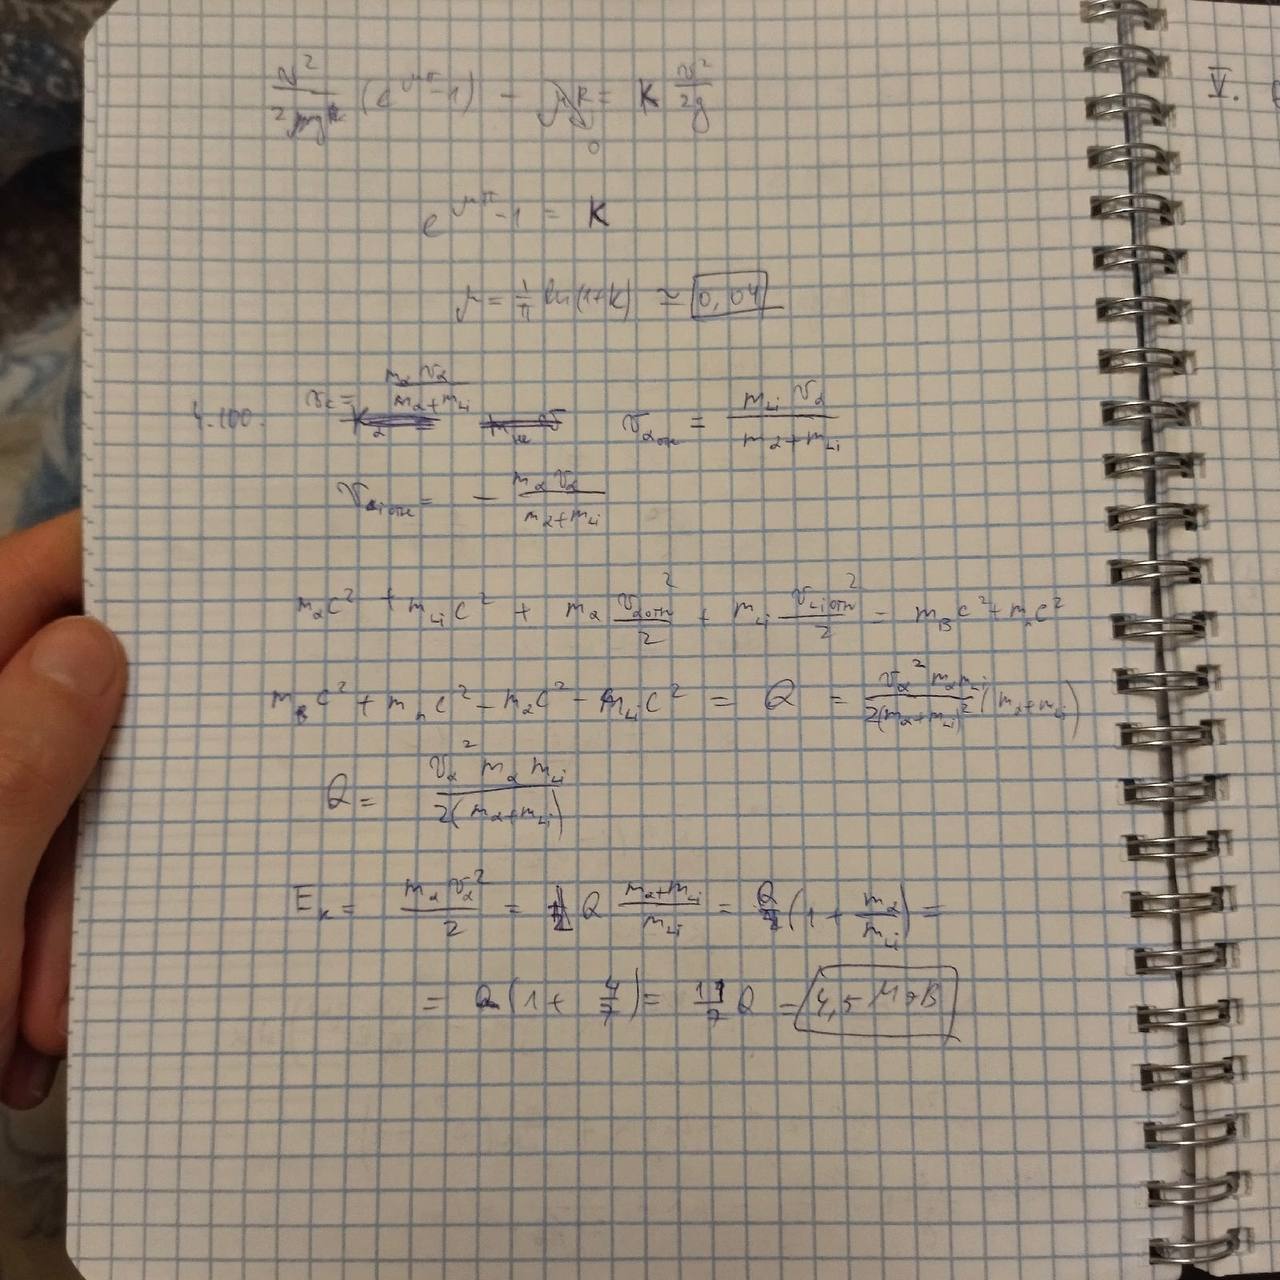 V.
v²/2μg (e^μπ - 1) - μR = K v²/2g
0
e^μπ - 1 = K
μ = 1/π ln(1+K) ≃ 0,04
4.100. v_c = m_α v_α / m_α+m_Li v_αотн = m_Li v_α / m_α+m_Li
v_Liотн = - m_α v_α / m_α+m_Li
m_α c² + m_Li c² + m_α v_αотн²/2 + m_Li v_Liотн²/2 = m_B c² + m_n c²
m_B c² + m_n c² - m_α c² - m_Li c² = Q = v_α² m_α m_Li / 2(m_α+m_Li)² (m_α+m_Li)
Q = v_α² m_α m_Li / 2(m_α+m_Li)
E_к = m_α v_α²/2 = Q m_α+m_Li / m_Li = Q (1 + m_α/m_Li) =
= Q (1 + 4/7) = 11/7 Q = 4,5 МэВ